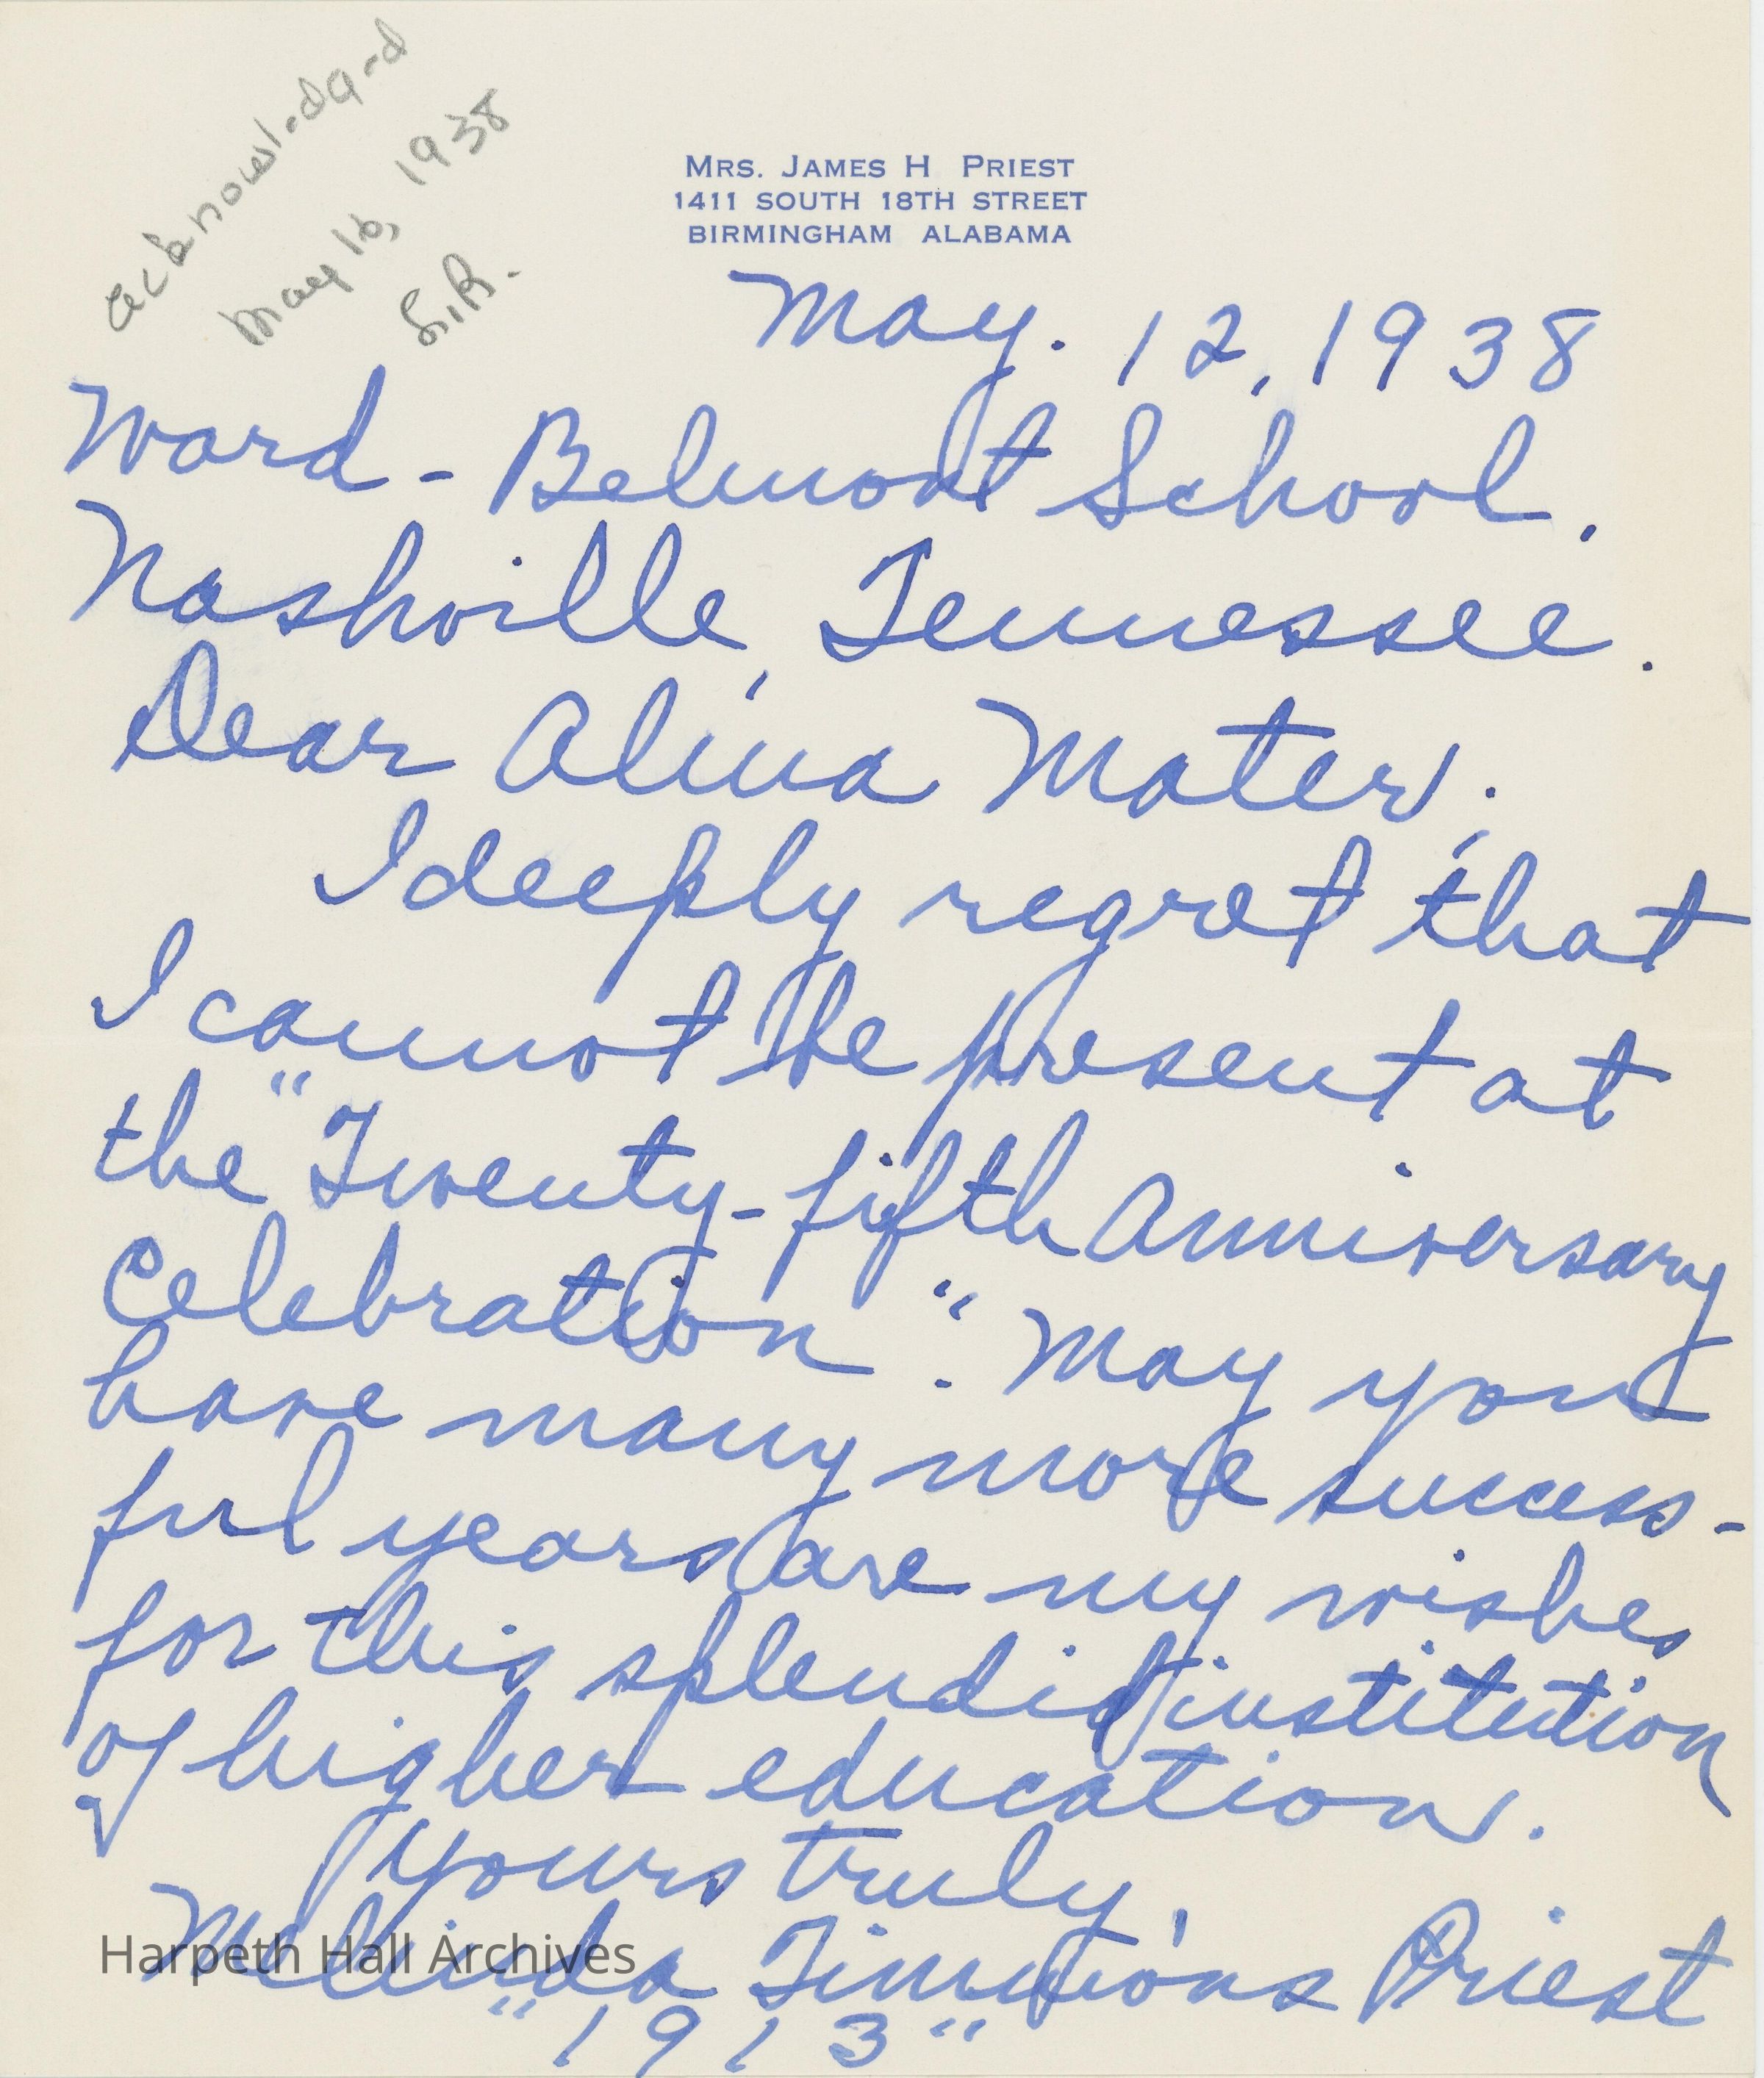 acknowledged
May 16, 1938
S.R.
MRS. JAMES H PRIEST
1411 SOUTH 18TH STREET
BIRMINGHAM ALABAMA
May. 12, 1938
Ward-Belmont School,
Nashville, Tennessee.
Dear Alma Mater;
I deeply regret that
I cannot be present at
the "Twenty-fifth Anniversary
Celebration". May you
have many more success-
ful years are my wishes
for this splendid institution
of higher education.
Yours truly,
Melinda Timmons Priest
"1913"
Harpeth Hall Archives